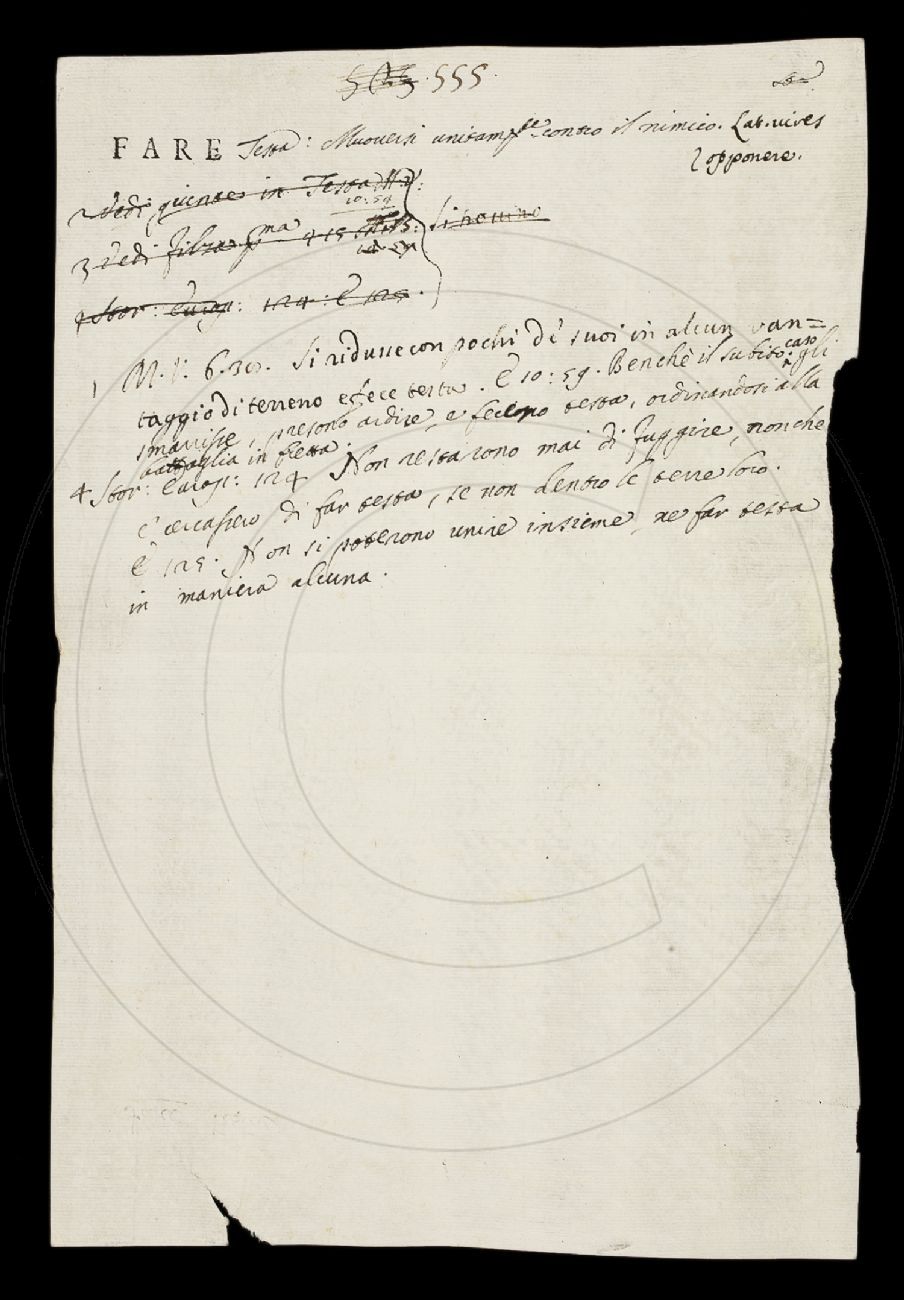 555
FARE Testa: Muoversi unitamte contro il nimico. Lat. vires
opponere.
2 Vedi giunte in Testa M.V:
10:59
3 Vedi filza pma 915 M.V: Si hovino
10. 59
4 Stor: Europ: 124: E 125.
1 M.V: 6.30. Si ridusse con pochi de suoi in alcun van=
taggio di terreno e fece testa. E 10:59. Benchè il subito caso gli
smarrisse, presono ardire, e fecono testa, ordinandosi alla
battaglia in fretta.
4 Stor: Europ: 124 Non restarono mai di fuggire, non che
e' accasero di far testa, se non dentro le terre loro.
E 125. Non si poterono unire insieme, ne far testa
in maniera alcuna.